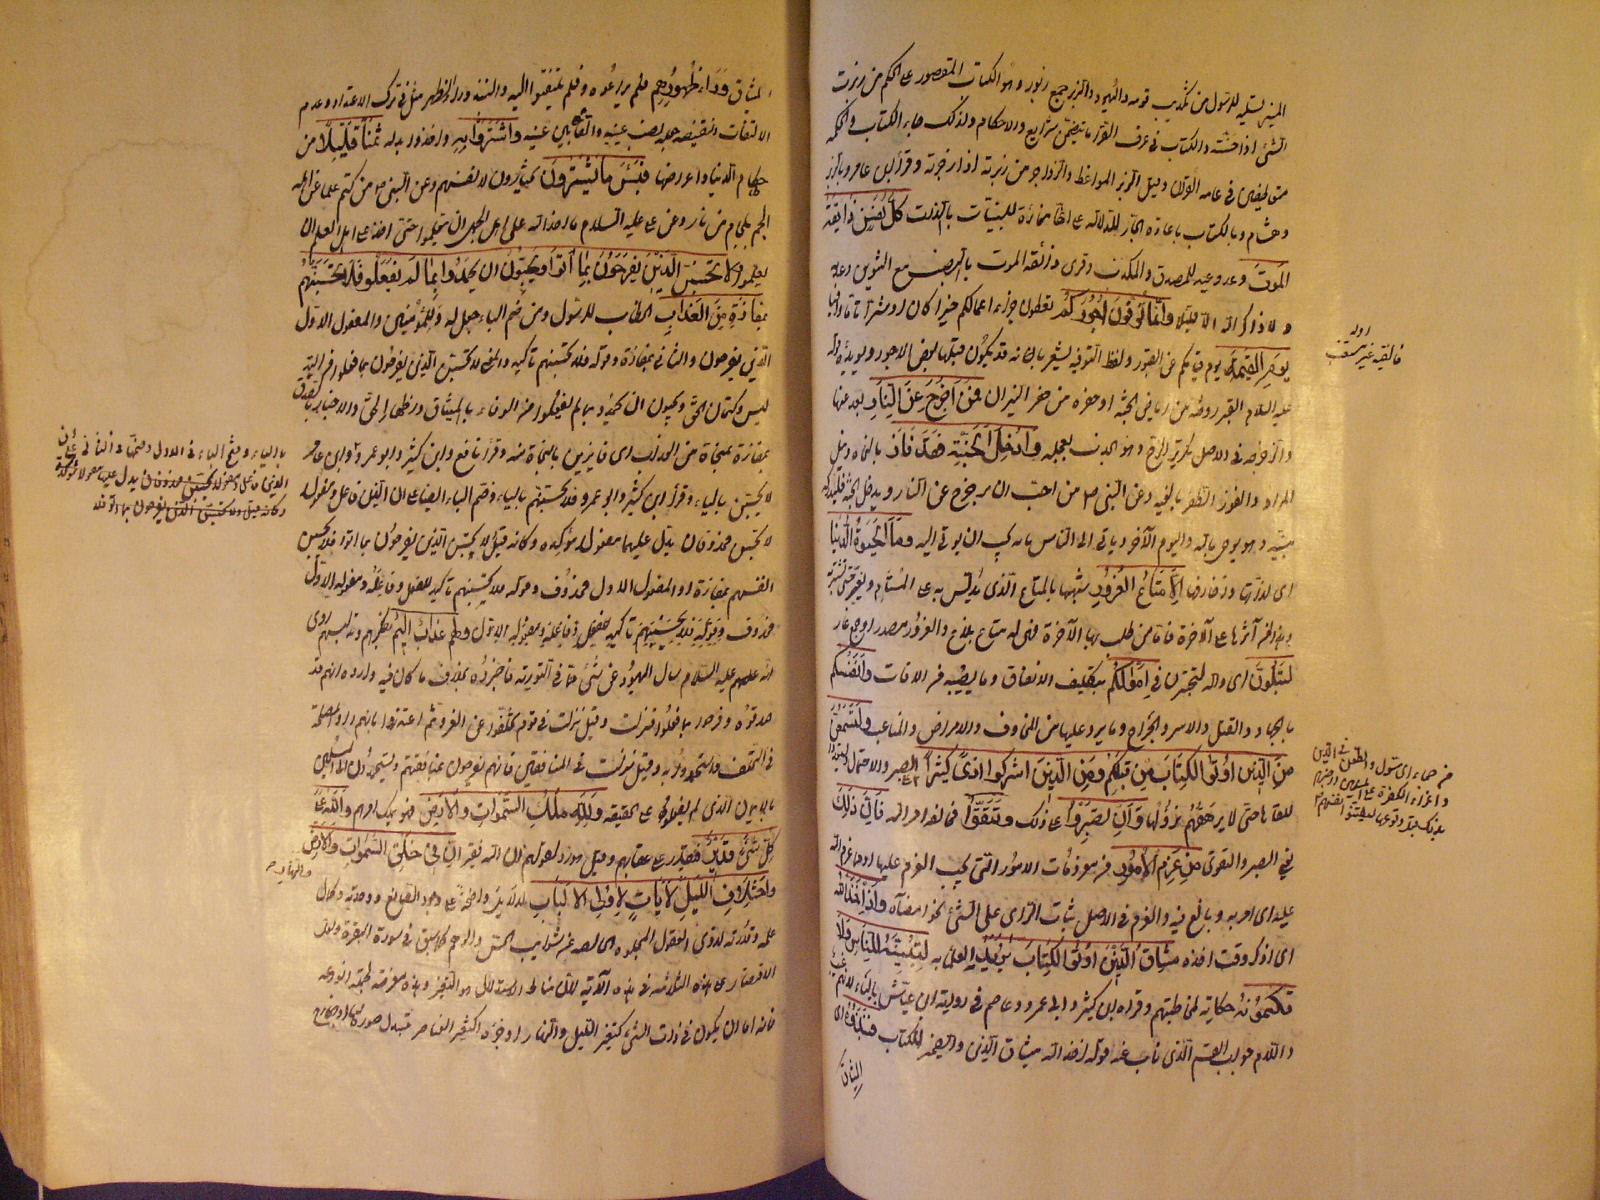 المنير تسلية للرسول من تكذيب قومه واليهود والزبر جمع زبور وهو الكتاب المقصور على الحكم من زبرت
الشئ اذا حسنته والكتاب في عرف القرآن ما يتضمن الشرايع والاحكام ولذلك جاء الكتاب والحكمة
متعاطفين في عامة القرآن وقيل الزبر المواعظ والزواجر من زبرته اذا زجرته وقرأ ابن عامر وبالزبر
وهشام وبالكتاب باعادة الجار للدلالة على انها مغايرة للبينات بالذات كُلُّ نَفْسٍ ذَائِقَةُ
المَوْتِ وعد ووعيد للمصدق والمكذب وقرئ ذائقة الموت بالنصب مع التنوين وعدمه
ولا ذاكر الله الا قليلا وَاِنَّمَا تُوَفَّوْنَ اُجُورَكُمْ تعطون جزاء اعمالكم خيرا كان او شرا تاما وافيا
يَوْمَ القِيمَةِ يوم قيامكم عن القبور ولفظ التوفية يشعر بانه قد يكون قبلها بعض الاجور ويؤيده قوله
عليه السلام القبر روضة من رياض الجنة او حفرة من حفر النيران فَمَنْ زُحْزِحَ عَنِ النَّارِ بعد عنها
والزحزحة في الاصل تكرير الزح وهو الجذب بعجلة وَاُدْخِلَ الْجَنَّةَ فَقَدْ فَازَ بالنجاة ونيل
المراد والفوز الظفر بالبغية وعن النبي ص من احب ان يزحزح عن النار ويدخل الجنة فلتدركه
منيته وهو يؤمن بالله واليوم الآخر ويأتي الى الناس ما يحب ان يؤتى اليه وَمَا الْحَيٰوةُ الدُّنْيَا
اى لذاتها وزخارفها اِلَّا مَتَاعُ الْغُرُورِ شبهها بالمتاع الذى يدلس به على المستام ويغر حتى يشتريه
وهذا لمن آثرها على الآخرة فاما من طلب بها الآخرة فهى له متاع بلاغ والغرور مصدر او جمع غار
لَتُبْلَوُنَّ اى والله لتختبرن فِى اَمْوَالِكُمْ بتكليف الانفاق وما يصيبها من الآفات وَاَنْفُسِكُمْ
بالجهاد والقتل والاسر والجراح وما يرد عليها من المخاوف والامراض والمتاعب وَلَتَسْمَعُنَّ
مِنَ الَّذِينَ اُوتُوا الْكِتَابَ مِنْ قَبْلِكُمْ وَمِنَ الَّذِينَ اَشْرَكُوا اَذًى كَثِيرًا الصبر والاحتمال ويستعدوا
للقائها حتى لا يرهقهم نزولها وَاِنْ تَصْبِرُوا على ذلك وَتَتَّقُوا مخالفة امر الله فَاِنَّ ذٰلِكَ
يعنى الصبر والتقوى مِنْ عَزْمِ الْاُمُورِ من معزومات الامور التى يجب العزم عليها او مما عزم الله
عليه اى امر به وبالغ فيه والعزم في الاصل ثبات الرأى على الشئ نحو امضائه وَاِذْ اَخَذَ اللّٰهُ
اى اذكر وقت اخذه مِيثَاقَ الَّذِينَ اُوتُوا الْكِتَابَ يريد به العلماء لَتُبَيِّنُنَّهُ لِلنَّاسِ وَلَا
تَكْتُمُونَهُ حكاية لمخاطبتهم وقرأه ابن كثير وابو عمرو وعاصم في رواية ابن عياش بالياء لانهم غيب
واللام جواب القسم الذى ناب عنه قوله اخذ الله ميثاق الذين والضمير للكتاب فَنَبَذُوهُ اى
الميثاق
من هجاء الرسول والطعن في الدين
واغراء الكفرة على المسلمين اخبرهم
بذلك قبل وقوعها ليوطنوا انفسهم
الميثاق وَرَاءَ ظُهُورِهِمْ فلم يراعوه ولم يلتفتوا اليه والنبذ وراء الظهر مثل في ترك الاعتداد وعدم
الالتفات ونقيضه جعله نصب عينيه والقاه بين عينيه وَاشْتَرَوْا بِهِ واخذوا بدله ثَمَنًا قَلِيلًا من
حطام الدنيا واعراضها فَبِئْسَ مَا يَشْتَرُونَ يختارون لانفسهم وعن النبى ص من كتم علما عن اهله
الجم بلجام من نار وعن على عليه السلام ما اخذ الله على اهل الجهل ان يتعلموا حتى اخذ على اهل العلم ان
يعلموا لَا تَحْسَبَنَّ الَّذِينَ يَفْرَحُونَ بِمَا اَتَوْا وَيُحِبُّونَ اَنْ يُحْمَدُوا بِمَا لَمْ يَفْعَلُوا فَلَا تَحْسَبَنَّهُمْ
بِمَفَازَةٍ مِنَ الْعَذَابِ الخطاب للرسول ومن ضم الباء جعل له وللمؤمنين والمفعول الاول
الذين يفرحون والثانى بمفازة وقوله فلا تحسبنهم تأكيد والمعنى لا تحسبن الذين يفرحون بما فعلوا من التدليس
وكتمان الحق ويحبون ان يحمدوا بما لم يفعلوا من الوفاء بالميثاق واظهار الحق والاخبار بالصدق
بمفازة بمنجاة من العذاب اى فائزين بالنجاة منه وقرأ نافع وابن كثير وابو عمرو وابن عامر
لا يحسبن بالياء وقرأ ابن كثير وابو عمرو فلا يحسبنهم بالياء وضم الباء ايضا على ان الذين فاعل ومفعولا
لا يحسبن محذوفان يدل عليهما مفعولا مؤكده وكانه قيل لا يحسبن الذين يفرحون بما اتوا فلا يحسبن
انفسهم بمفازة او المفعول الاول محذوف وقوله فلا يحسبنهم تأكيد للفعل وفاعله ومفعوله الاول
وَلَهُمْ عَذَابٌ اَلِيمٌ بكفرهم وتدليسهم روى
انه عليه السلام سأل اليهود عن شئ مما في التورية فاخبروه بخلاف ما كان فيه واروه انهم قد
صدقوه وفرحوا بما فعلوا فنزلت وقيل نزلت في قوم تخلفوا عن الغزو ثم اعتذروا بانهم رأوا المصلحة
في التخلف واستحمدوا به وقيل نزلت في المنافقين فانهم يفرحون بمنافقتهم ويستحمدون الى المسلمين
بالايمان الذى لم يفعلوه على الحقيقة وَلِلّٰهِ مُلْكُ السَّمٰوَاتِ وَالْاَرْضِ فهو يملك امرهم وَاللّٰهُ عَلٰى
كُلِّ شَىْءٍ قَدِيرٌ فيقدر على عقابهم وقيل هو رد لقولهم ان الله فقير اِنَّ فِى خَلْقِ السَّمٰوَاتِ وَالْاَرْضِ
وَاخْتِلَافِ اللَّيْلِ لَاٰيَاتٍ لِاُولِى الْاَلْبَابِ لدلائل واضحة على وجود الصانع ووحدته وكمال
علمه وقدرته لذوى العقول المجلوة الخالصة عن شوائب الحس والوهم كما سبق في سورة البقرة ولعل
الاقتصار على هذه الثلاثة في هذه الآية لان مناط الاستدلال هو التغير وهذه معرضة لجملة انواعه
فانه اما ان يكون في ذات الشئ كتغير الليل والنهار او جزئه كتغير العناصر بتبدل صورها او الخارج
والنهار